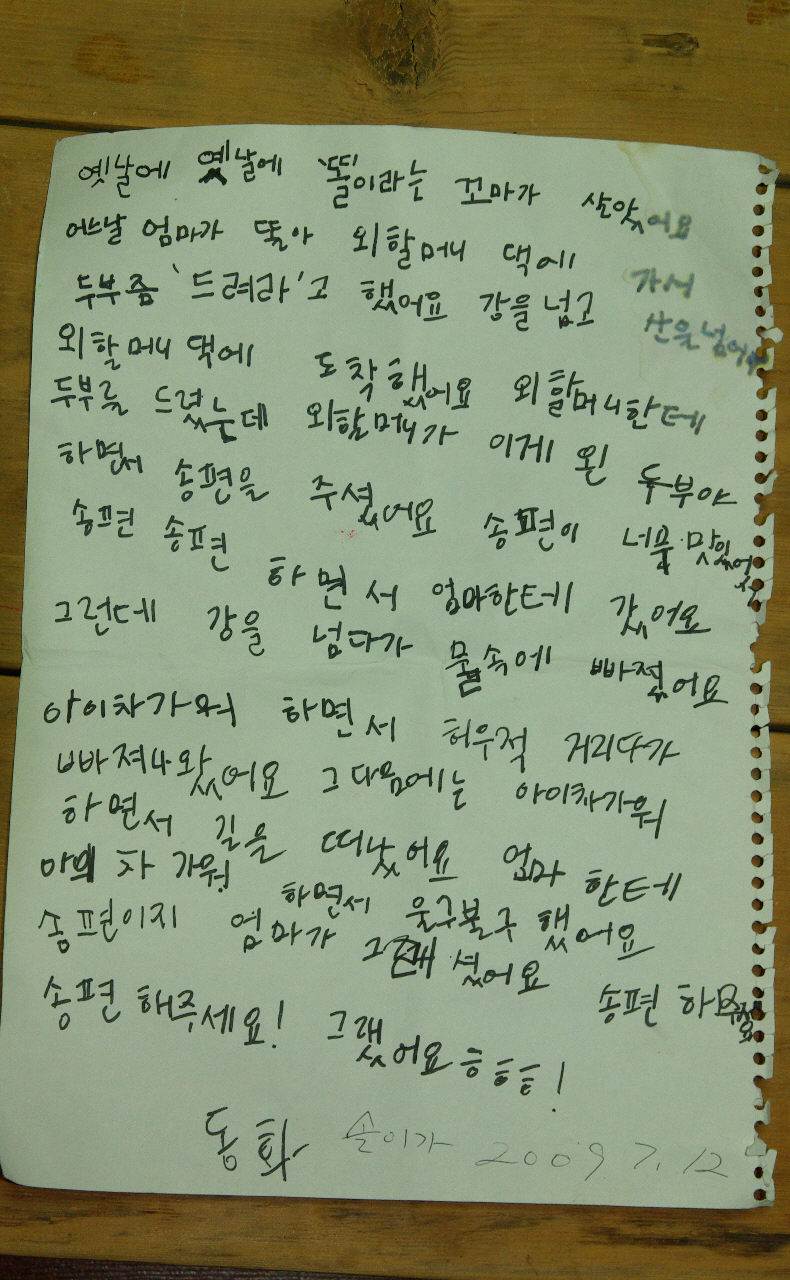 옛날에 옛날에 '똘'이라는 꼬마가 살았어요
어느날 엄마가 똘아 외할머니 댁에 가서
두부좀 '드려라'고 했어요 강을 넘고 산을 넘어서
외할머니 댁에 도착했어요 외할머니한테
두부를 드렸는데 외할머니가 이게 왼 두부야
하면서 송편을 주셨어요 송편이 너무 맛있어서
송편 송편 하면서 엄마한테 갔어요
그런데 강을 넘다가 물속에 빠졌어요
아이차가워 하면서 허우적 거리다가
빠져나왔어요 그다음에는 아이차가워
하면서 길을 떠났어요 엄마한테
아이차가워 하면서 울구불구 했어요
송편이지 엄마가 그러셨어요 송편
송편 해주세요! 그랬어요 ㅎㅎㅎ!
동화 솔이가 2009 7. 12